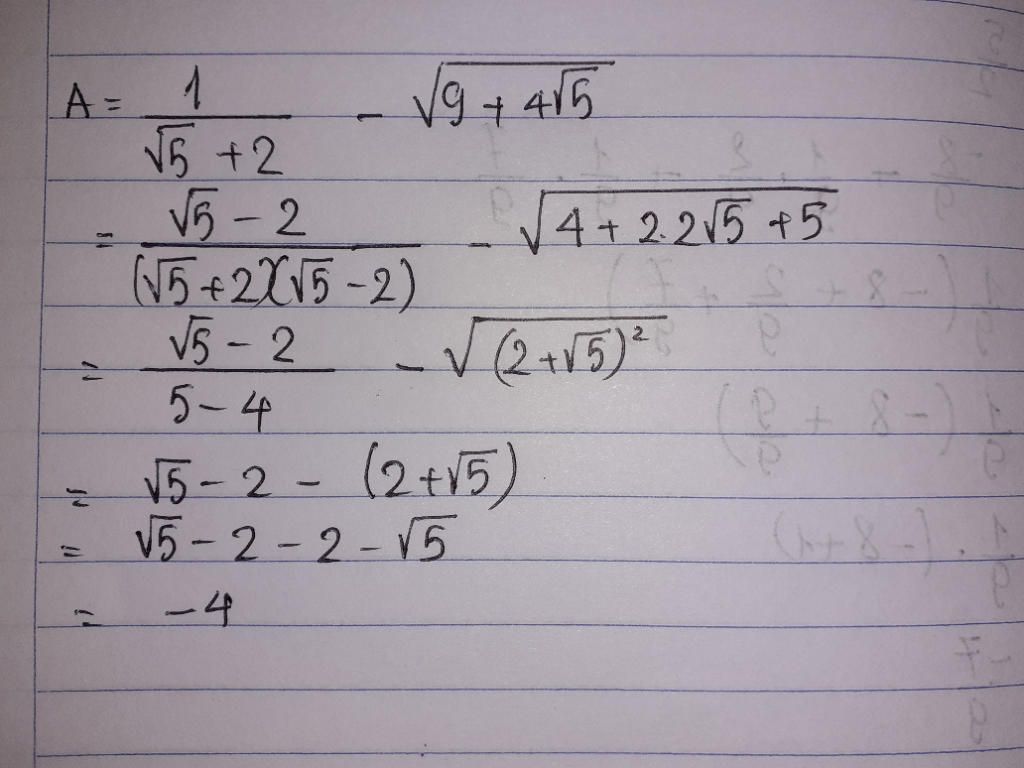 A = \frac{1}{\sqrt{5} + 2} - \sqrt{9 + 4\sqrt{5}}
= \frac{\sqrt{5} - 2}{(\sqrt{5} + 2)(\sqrt{5} - 2)} - \sqrt{4 + 2.2\sqrt{5} + 5}
= \frac{\sqrt{5} - 2}{5 - 4} - \sqrt{(2 + \sqrt{5})^2}
= \sqrt{5} - 2 - (2 + \sqrt{5})
= \sqrt{5} - 2 - 2 - \sqrt{5}
= -4